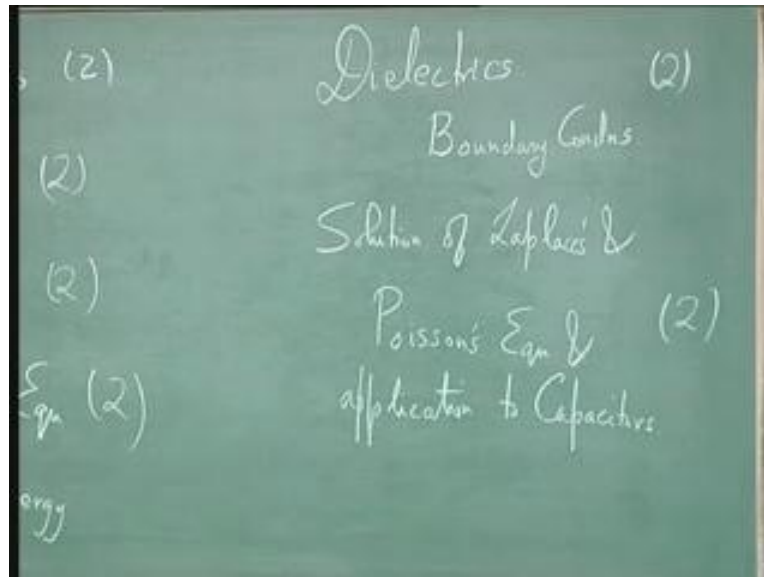 (2)
(2)
(2)
Eqn (2)
ergy
Dielectrics (2)
Boundary Condns
Solution of Laplace's &
Poisson's Eqn & (2)
application to Capacitors